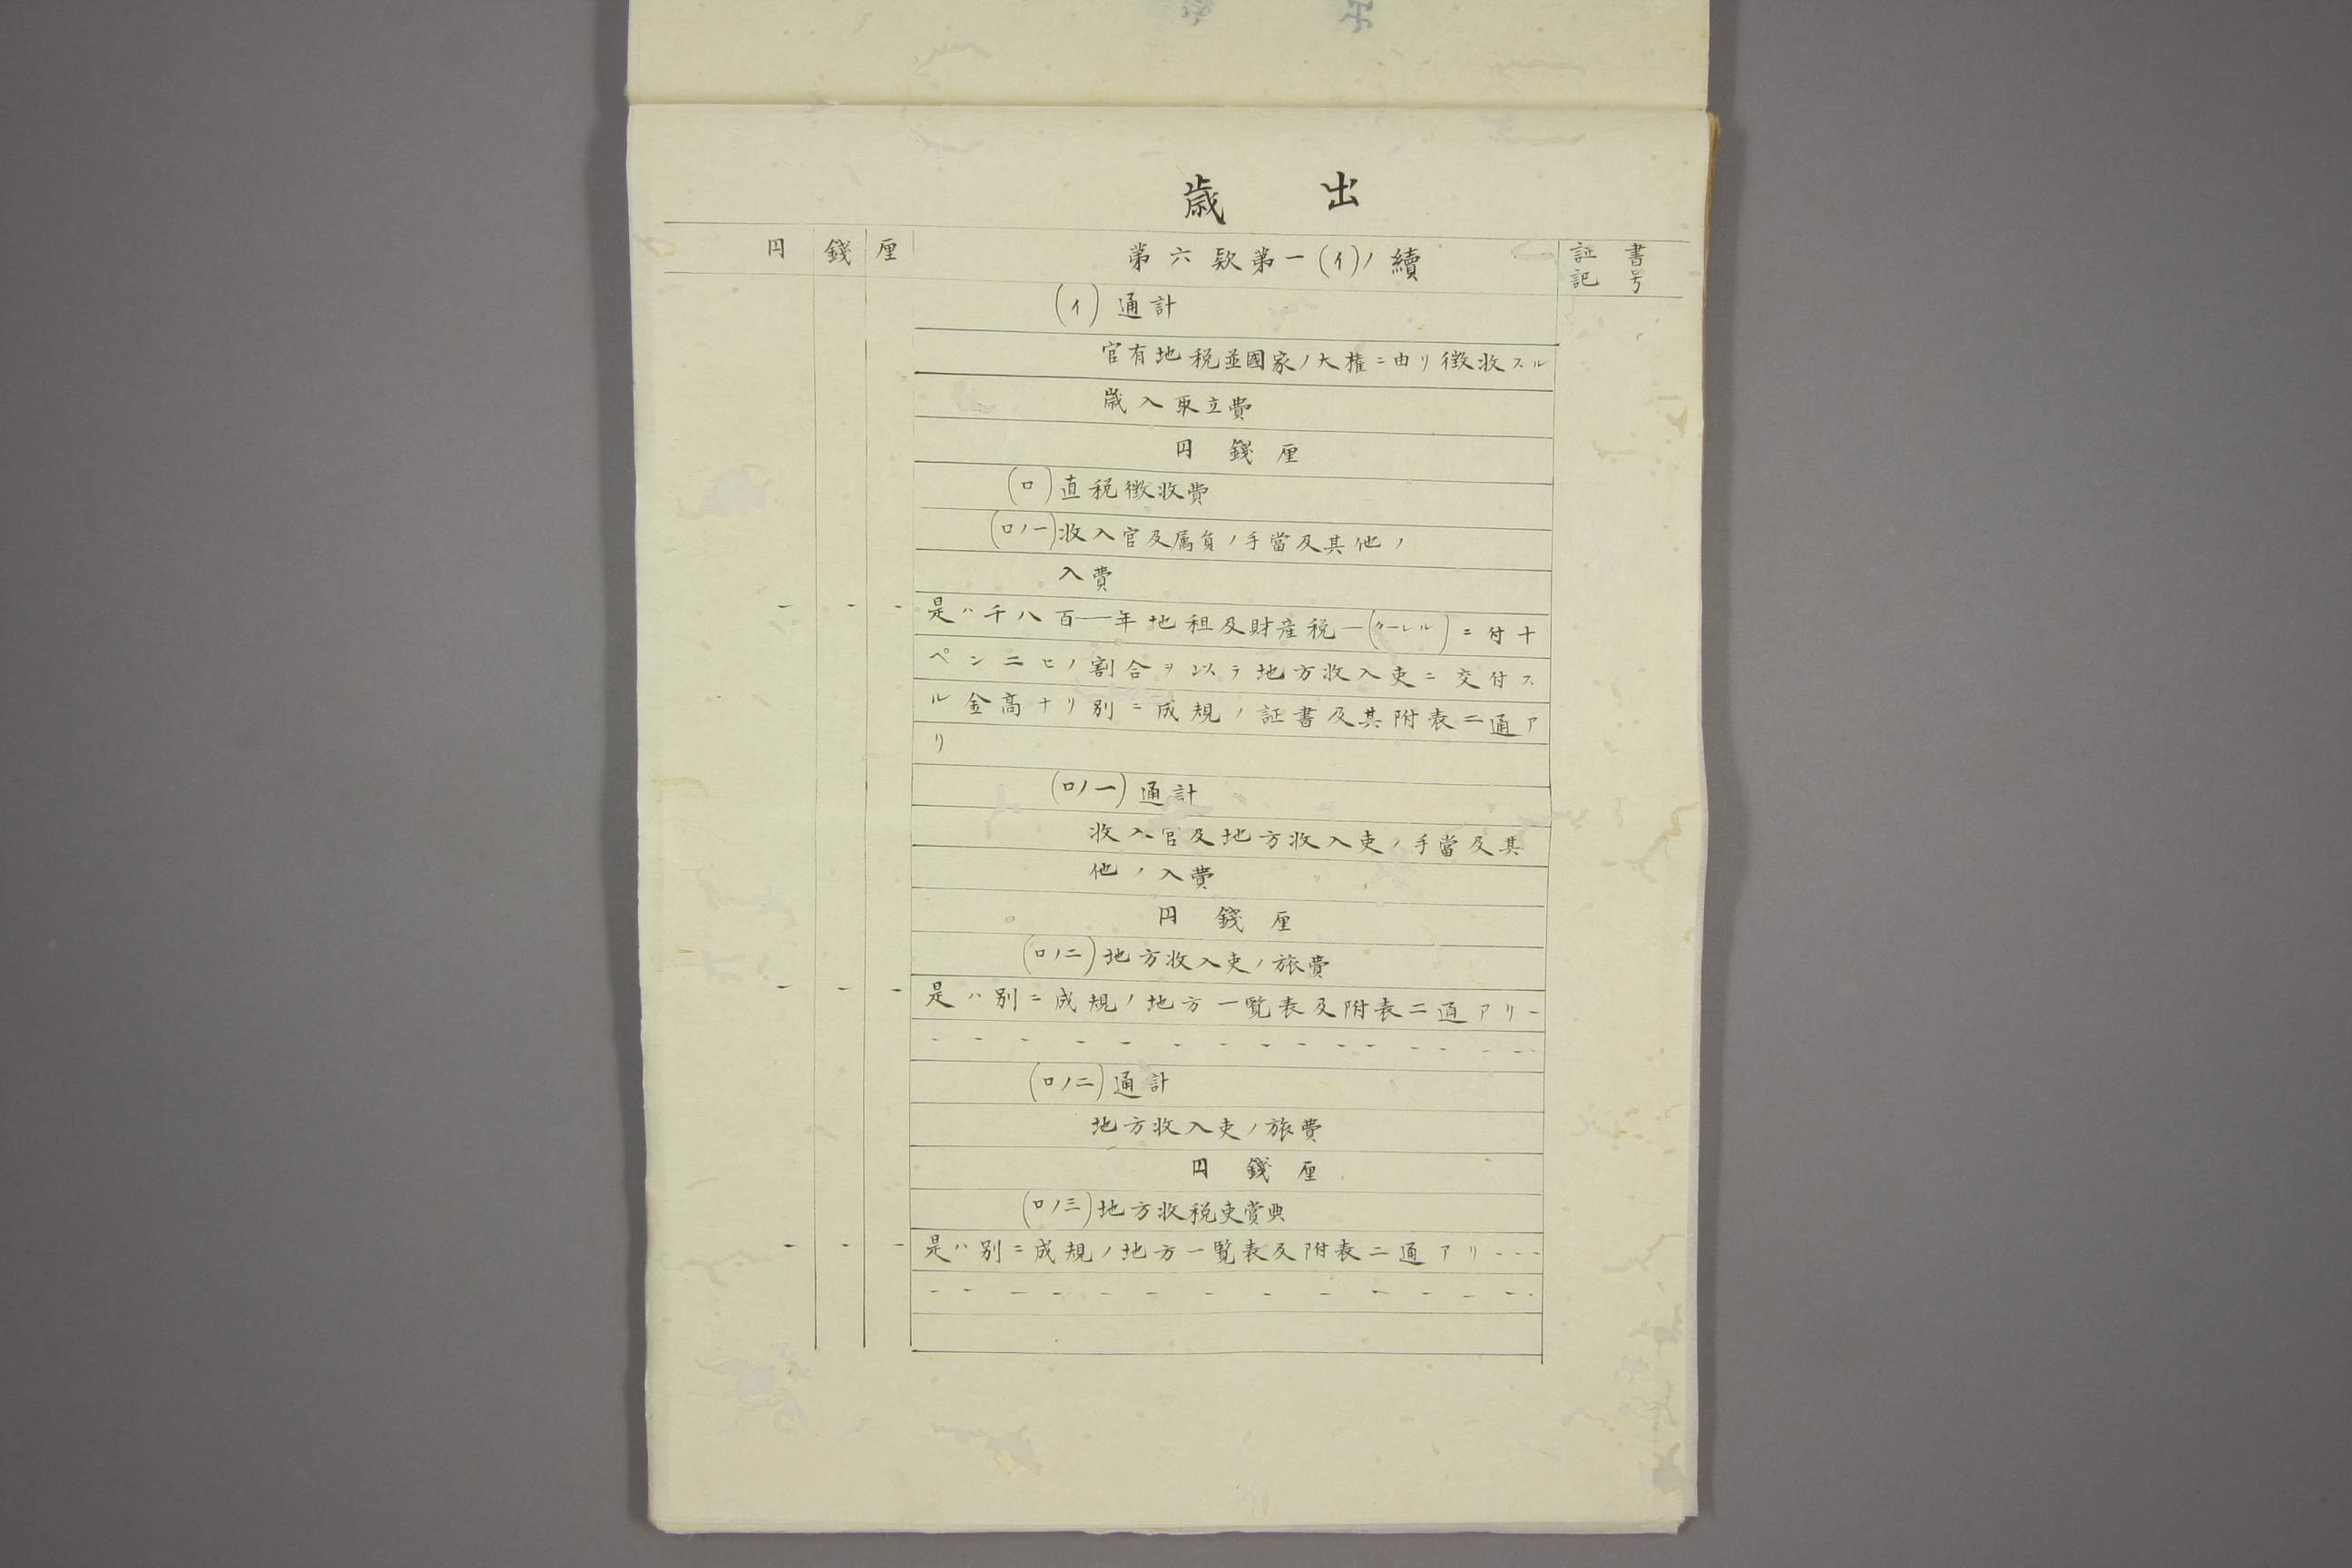 歳出
円 錢 厘 第六欵第一(イ)ノ續 証書
記号
(イ)通計
官有地税並國家ノ大権ニ由リ徴收スル
歳入取立費
円 錢 厘
(ロ)直税徴收費
(ロノ一)收入官及属負ノ手當及其他ノ
入費
是ハ千八百——年地租及財産税—(クーレル)ニ付十
ペンニヒノ割合ヲ以テ地方收入吏ニ交付ス
ル金高ナリ別ニ成規ノ証書及其附表二通ア
リ
(ロノ一)通計
收入官及地方收入吏ノ手當及其
他ノ入費
円 錢 厘
(ロノ二)地方收入吏ノ旅費
是ハ別ニ成規ノ地方一覧表及附表二通アリ-
(ロノ二)通計
地方收入吏ノ旅費
円 錢 厘
(ロノ三)地方收税吏賞典
是ハ別ニ成規ノ地方一覧表及附表二通アリ---